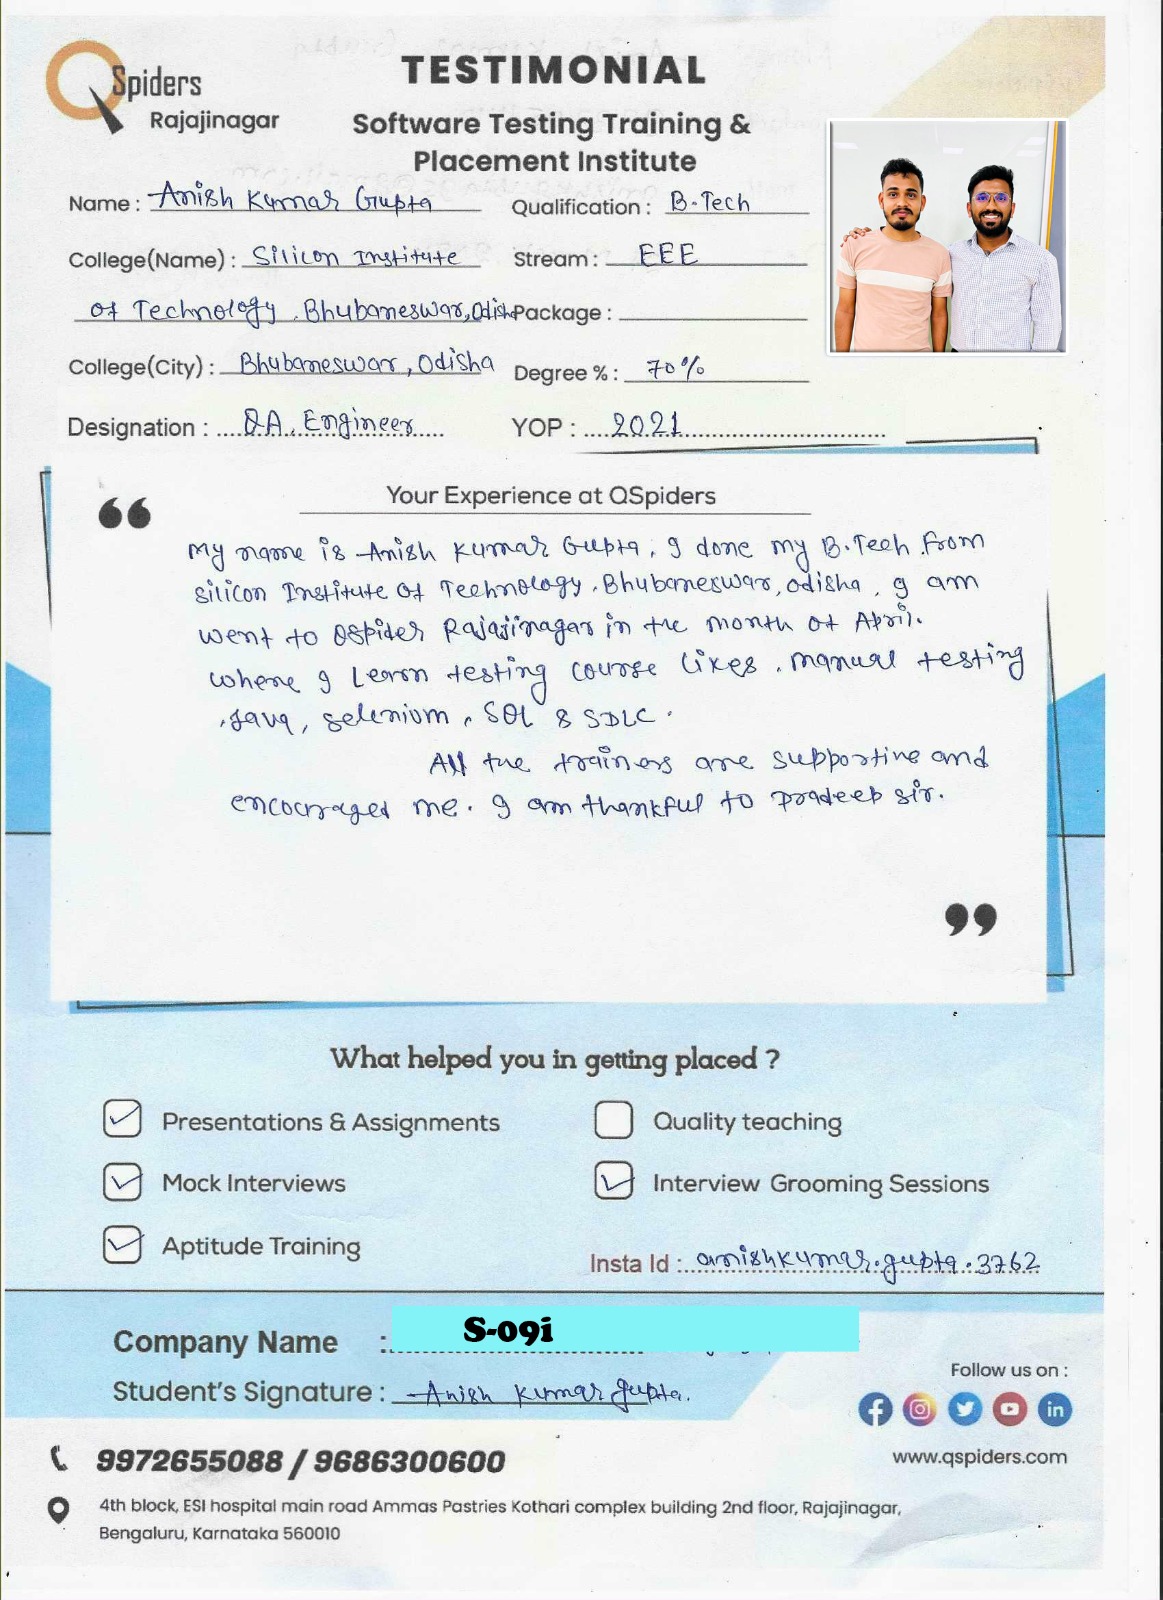 QSpiders
Rajajinagar
TESTIMONIAL
Software Testing Training &
Placement Institute
Name : Anish Kumar Gupta
Qualification : B.Tech
College(Name) : Silicon Institute
Stream : EEE
of Technology, Bhubaneswar, Odisha
Package :
College(City) : Bhubaneswar, Odisha
Degree % : 70%
Designation : QA. Engineer
YOP : 2021
Your Experience at QSpiders
My name is Anish Kumar Gupta, I done my B.Tech from
silicon Institute of Technology, Bhubaneswar, odisha, I am
went to Qspider Rajajinagar in the month of April.
where I Learn testing course likes, manual testing
, Java, selenium, SQL & SDLC.
All the trainers are supportive and
encourages me. I am thankful to Pradeep sir.
What helped you in getting placed ?
Presentations & Assignments
Quality teaching
Mock Interviews
Interview Grooming Sessions
Aptitude Training
Insta Id : anishkumar.gupta.3762
Company Name : S-09i
Student's Signature : Anish Kumar Gupta.
Follow us on :
9972655088 / 9686300600
www.qspiders.com
4th block, ESI hospital main road Ammas Pastries Kothari complex building 2nd floor, Rajajinagar,
Bengaluru, Karnataka 560010